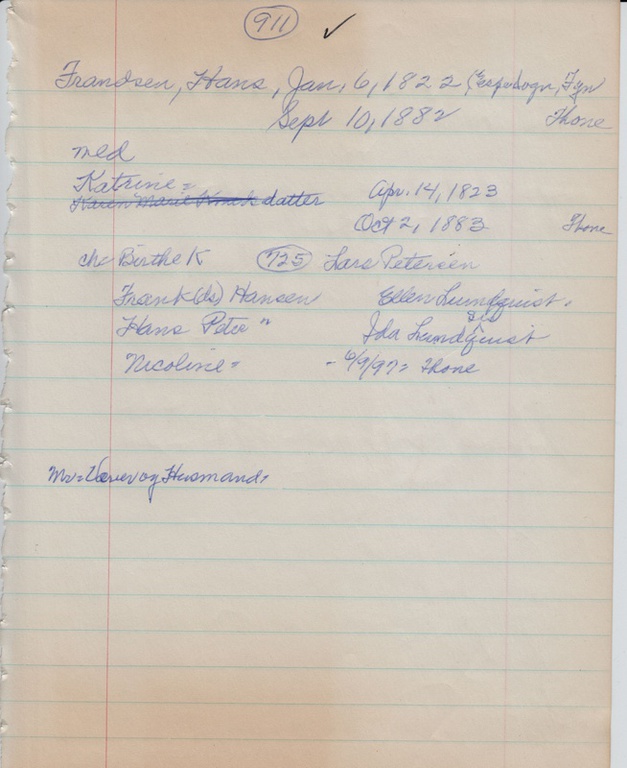 911 ✓
Frandsen, Hans, Jan. 6, 1822 (Espe Sogn, Fyn
Sept 10, 1882 Thone
med
Katrine =
Karen Marie datter Apr. 14, 1823
Oct 2, 1883 Thone
ch Birthe K 725 Lars Petersen
Frank (ds) Hansen Ellen Lundquist.
sis
Hans Peter " Ida Lundquist
Nicoline = - 6/9/97 = Thone
Mr = Væver og Husmand.